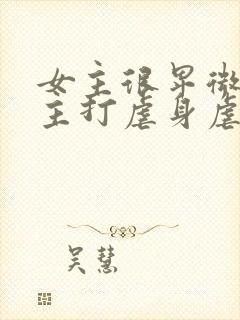 女主很早微
主打虐身虐
吴慧